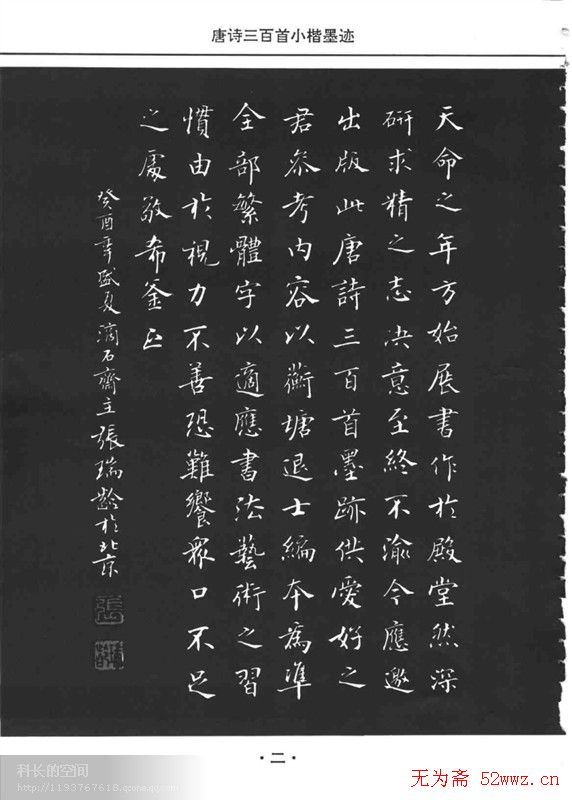 唐诗三百首小楷墨迹
天命之年方始展書作於殿堂然深
研求精之志决意至終不渝今應邀
出版此唐詩三百首墨跡供愛好之
君参考内容以蘅塘退士編本為準
全部繁體字以適應書法藝術之習
慣由於視力不善恐難饗眾口不足
之處敬希釜正
癸酉年盛夏滴石齋主張瑞齡於北京
·二·
科长的空间
http://1193767618.qzone.qq.com
无为斋 52wwz.cn